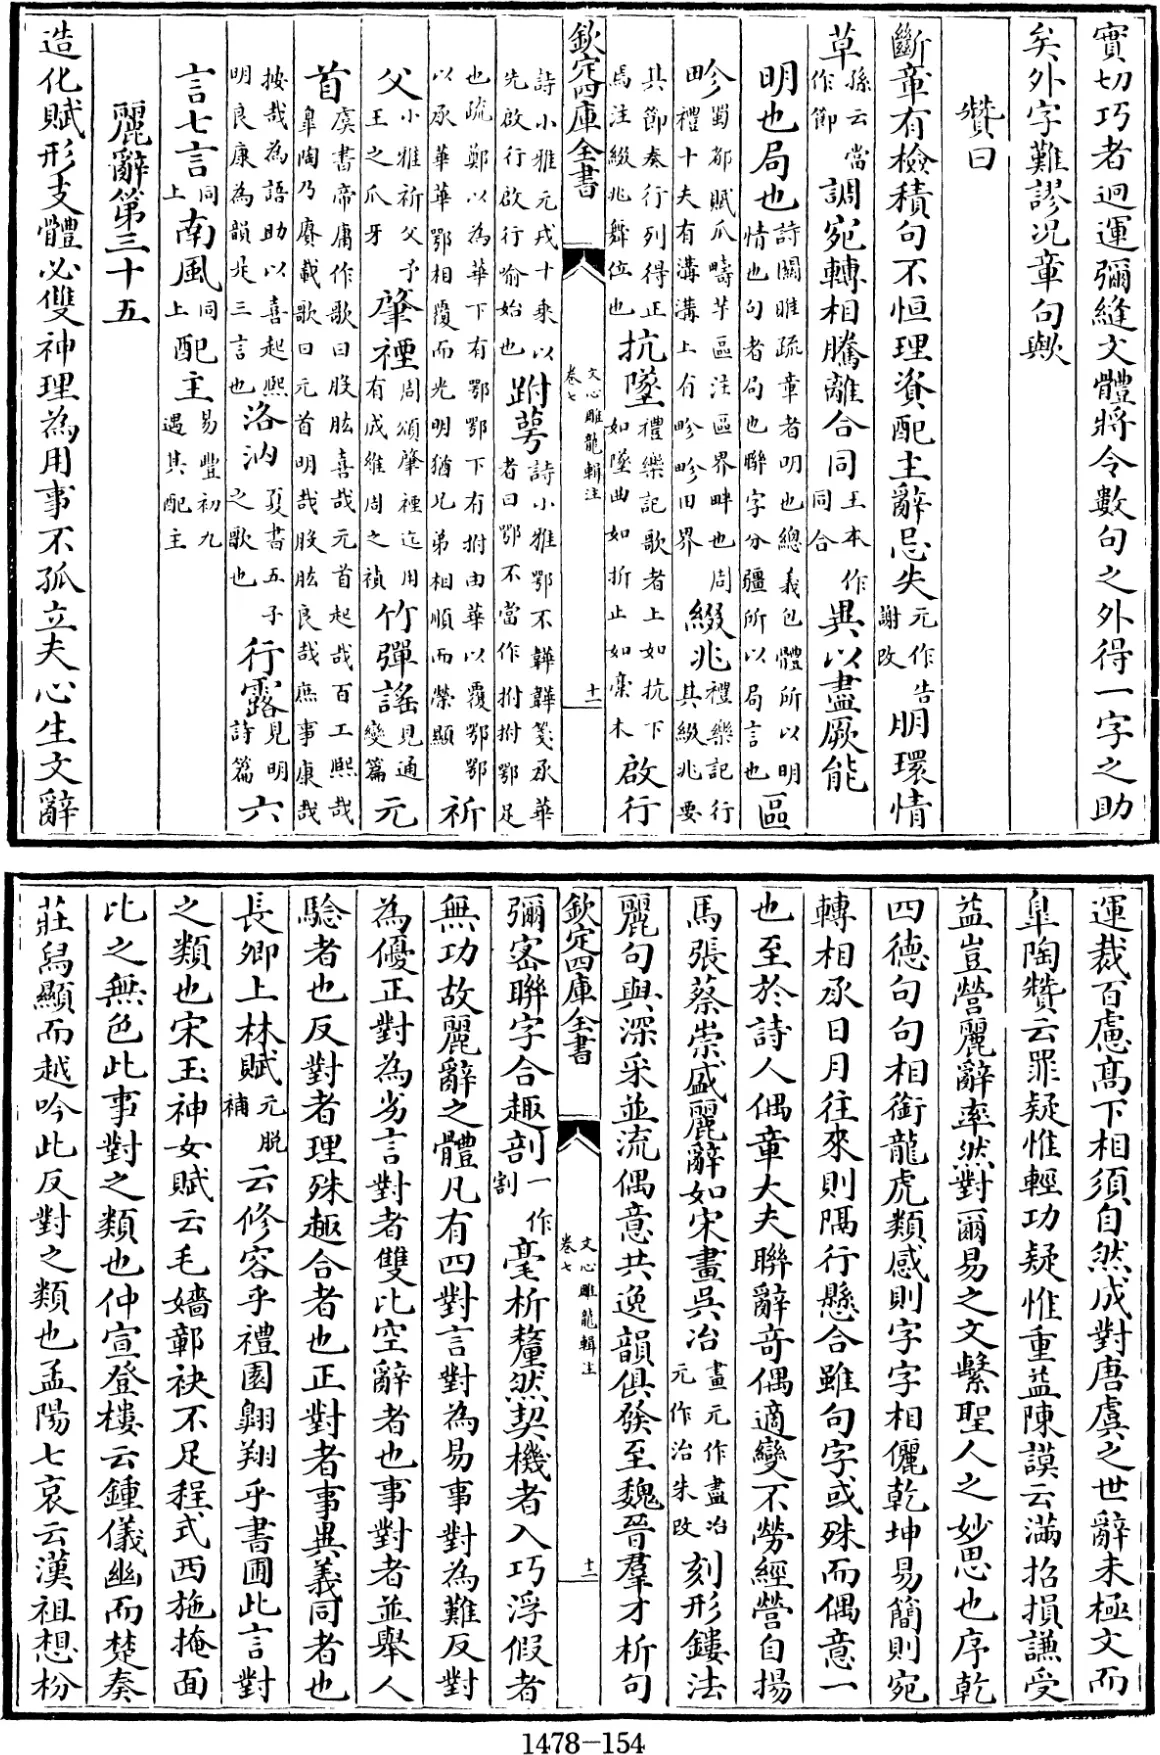 實切巧者迴運彌縫文體將令數句之外得一字之助
矣外字難謬況章句歟
贊曰
斷章有檢積句不恒理資配主辭忌失元作告謝改朋環情
草孫云當作節調宛轉相騰離合同王本作同合異以盡厥能
明也局也詩關雎疏章者明也總義包體所以明情也句者局也聯字分疆所以局言也區
畛蜀都賦瓜疇芋區注區界畔也周禮十夫有溝溝上有畛畛田界綴兆禮樂記行其綴兆要
其節奏行列得正焉注綴兆舞位也抗墜禮樂記歌者上如抗下如墜曲如折止如槀木啟行
欽定四庫全書 文心雕龍輯注 卷七 十一
詩小雅元戎十乘以先啟行啟行喻始也跗萼詩小雅鄂不韡韡箋承華者曰鄂不當作拊拊鄂足
也疏鄭以為華下有鄂鄂下有拊由華以覆鄂鄂以承華華鄂相覆而光明猶兄弟相順而榮顯祈
父小雅祈父予王之爪牙肇禋周頌肇禋迄用有成維周之禎竹彈謠見通變篇元
首虞書帝庸作歌曰股肱喜哉元首起哉百工熙哉臯陶乃賡載歌曰元首明哉股肱良哉庶事康哉
按哉為語助以喜起熙明良康為韻是三言也洛汭夏書五子之歌也行露見明詩篇六
言七言同上南風同上配主易豐初九遇其配主
麗辭第三十五
造化賦形支體必雙神理為用事不孤立夫心生文辭
運裁百慮高下相須自然成對唐虞之世辭未極文而
臯陶贊云罪疑惟輕功疑惟重益陳謨云滿招損謙受
益豈營麗辭率然對爾易之文繫聖人之妙思也序乾
四德句句相銜龍虎類感則字字相儷乾坤易簡則宛
轉相承日月往來則隔行懸合雖句字或殊而偶意一
也至於詩人偶章大夫聯辭奇偶適變不勞經營自揚
馬張蔡崇盛麗辭如宋畫吳冶畫元作盡冶元作治朱改刻形鏤法
麗句與深采並流偶意共逸韻俱發至魏晉羣才析句
欽定四庫全書 文心雕龍輯注 卷七 十二
彌密聯字合趣剖一作割毫析釐然契機者入巧浮假者
無功故麗辭之體凡有四對言對為易事對為難反對
為優正對為劣言對者雙比空辭者也事對者並舉人
驗者也反對者理殊趣合者也正對者事異義同者也
長卿上林賦元脫補云修容乎禮園翺翔乎書圃此言對
之類也宋玉神女賦云毛嬙鄣袂不足程式西施掩面
比之無色此事對之類也仲宣登樓云鍾儀幽而楚奏
莊舄顯而越吟此反對之類也孟陽七哀云漢祖想枌
1478-154